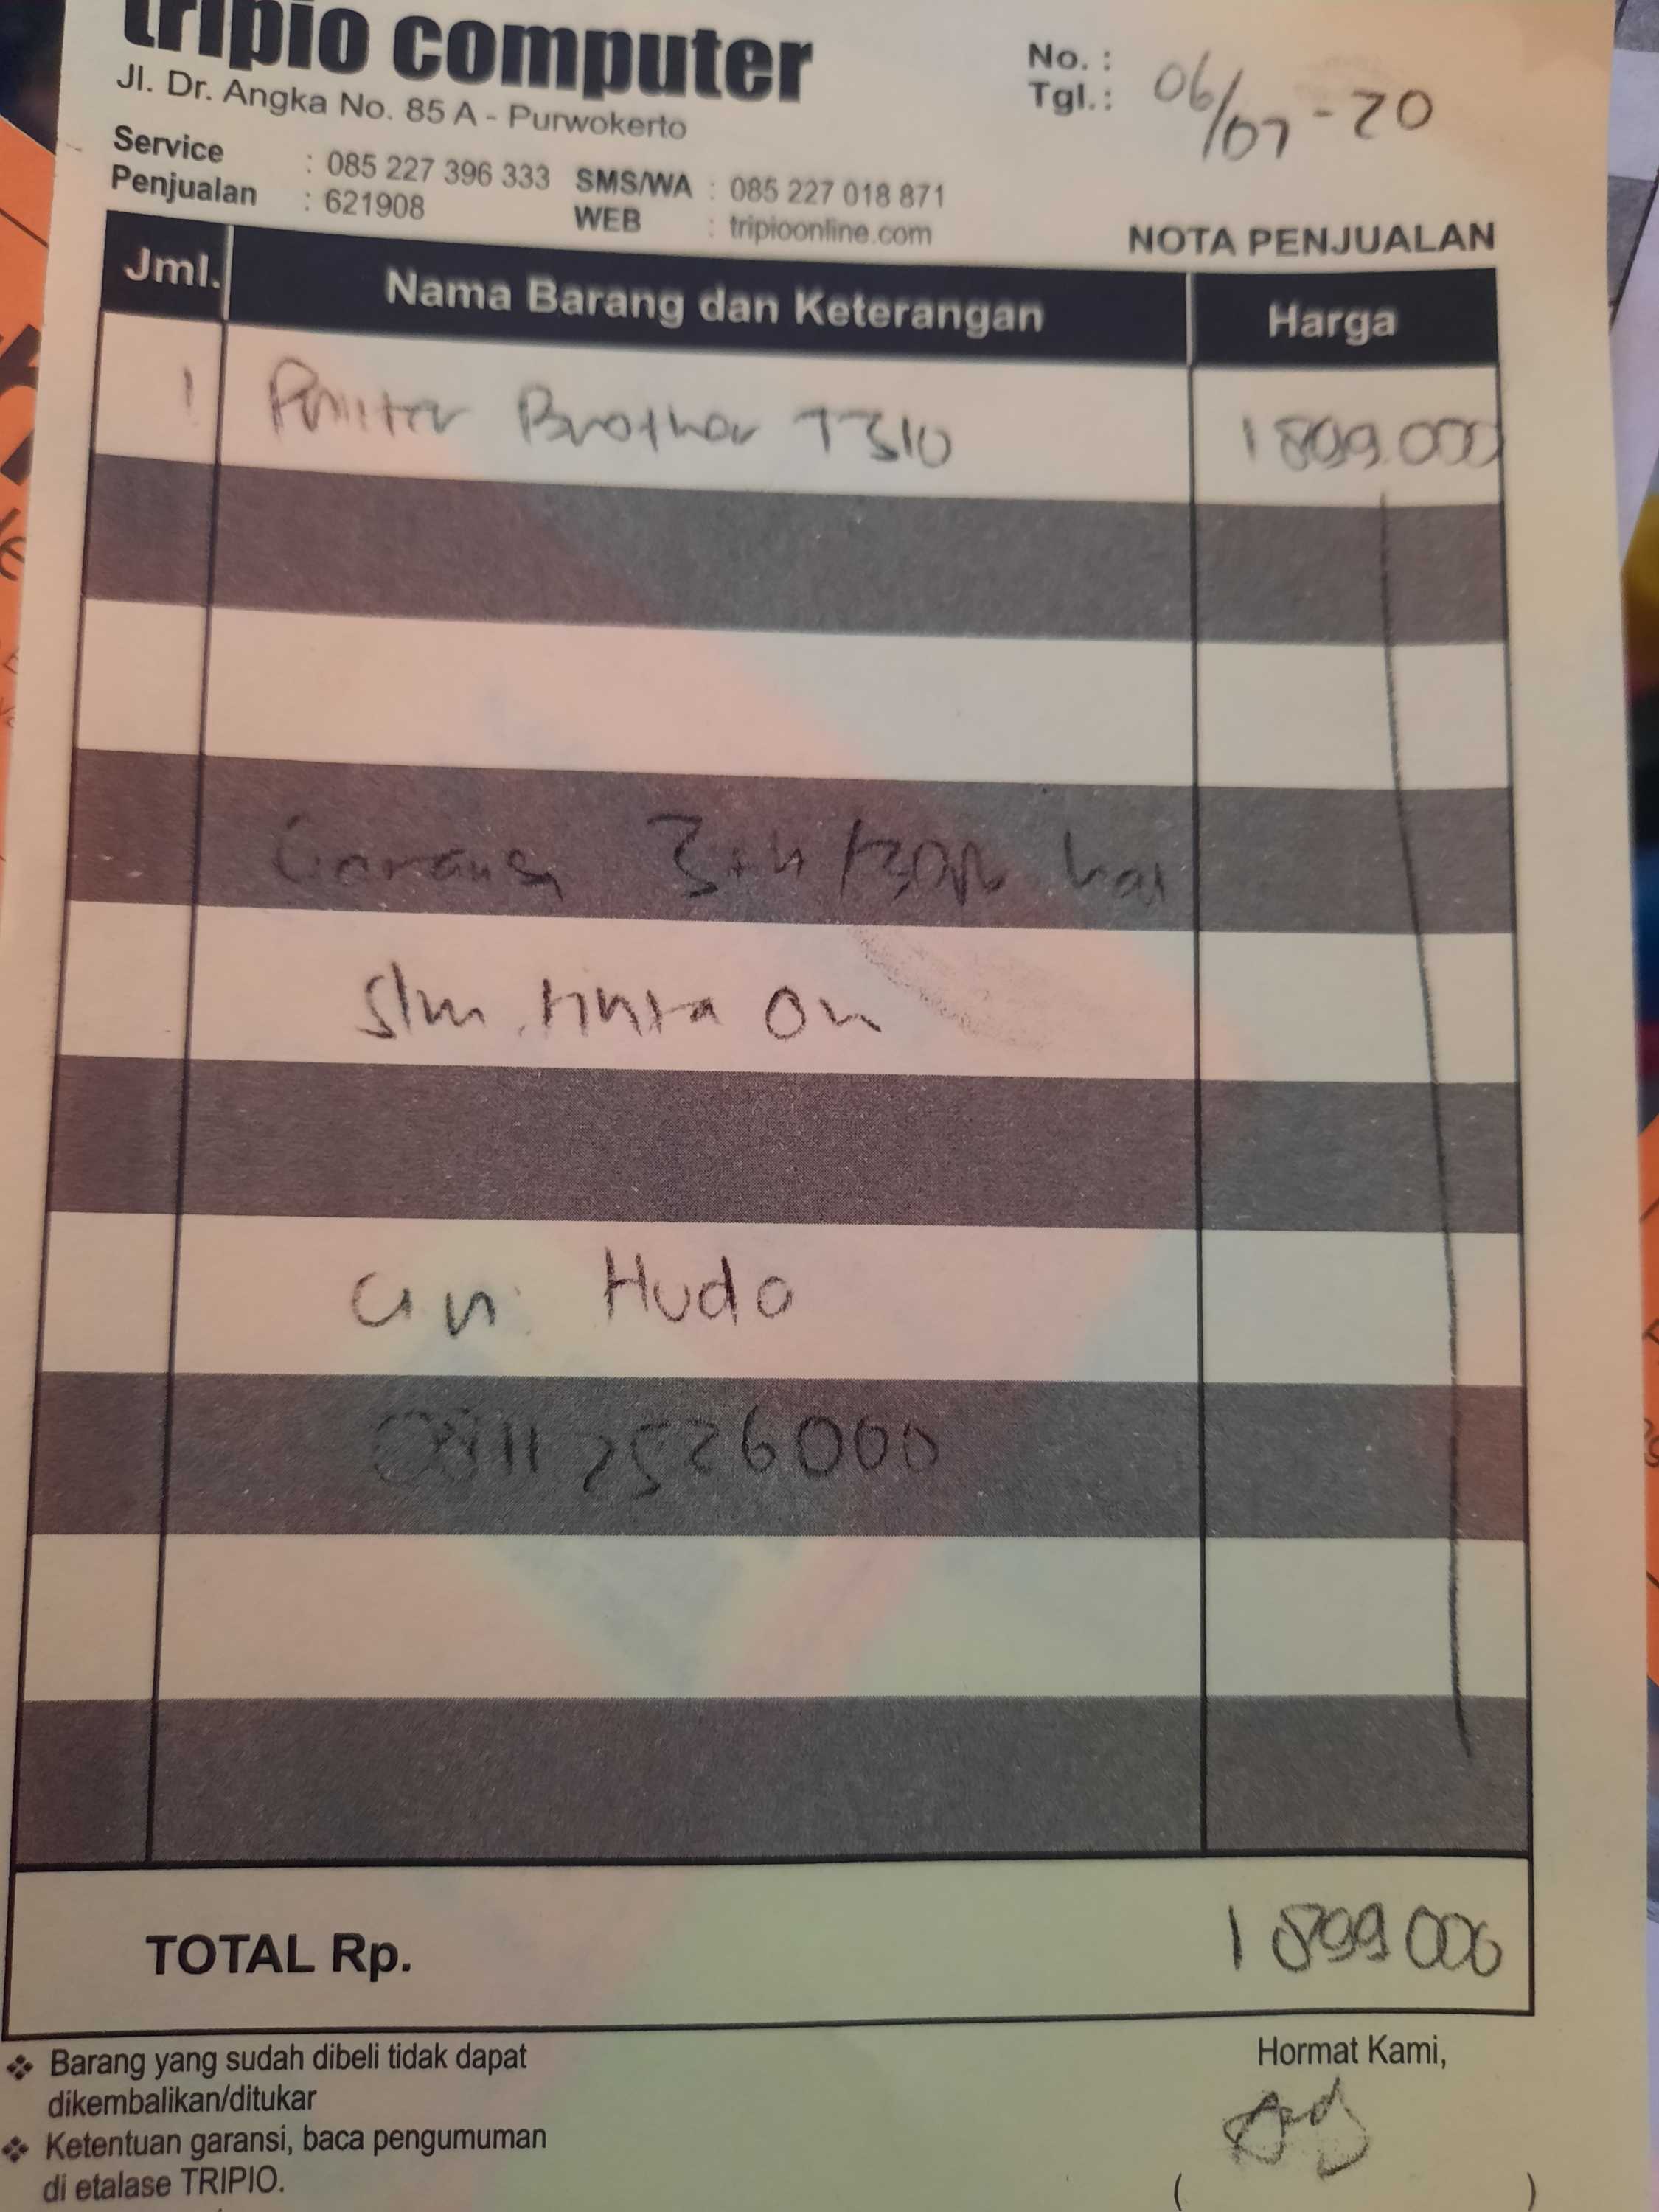 tripio computer
Jl. Dr. Angka No. 85 A - Purwokerto
No. :
Tgl. : 06/07-20
Service : 085 227 396 333 SMS/WA : 085 227 018 871
Penjualan : 621908 WEB : tripioonline.com
NOTA PENJUALAN
Jml. Nama Barang dan Keterangan Harga
1 Printer Brother T310 1899.000
Garansi 3th/30rb hal
Slm tinta On
an. Huda
08112526000
TOTAL Rp. 1899000
Barang yang sudah dibeli tidak dapat
dikembalikan/ditukar
Ketentuan garansi, baca pengumuman
di etalase TRIPIO.
Hormat Kami,
( )